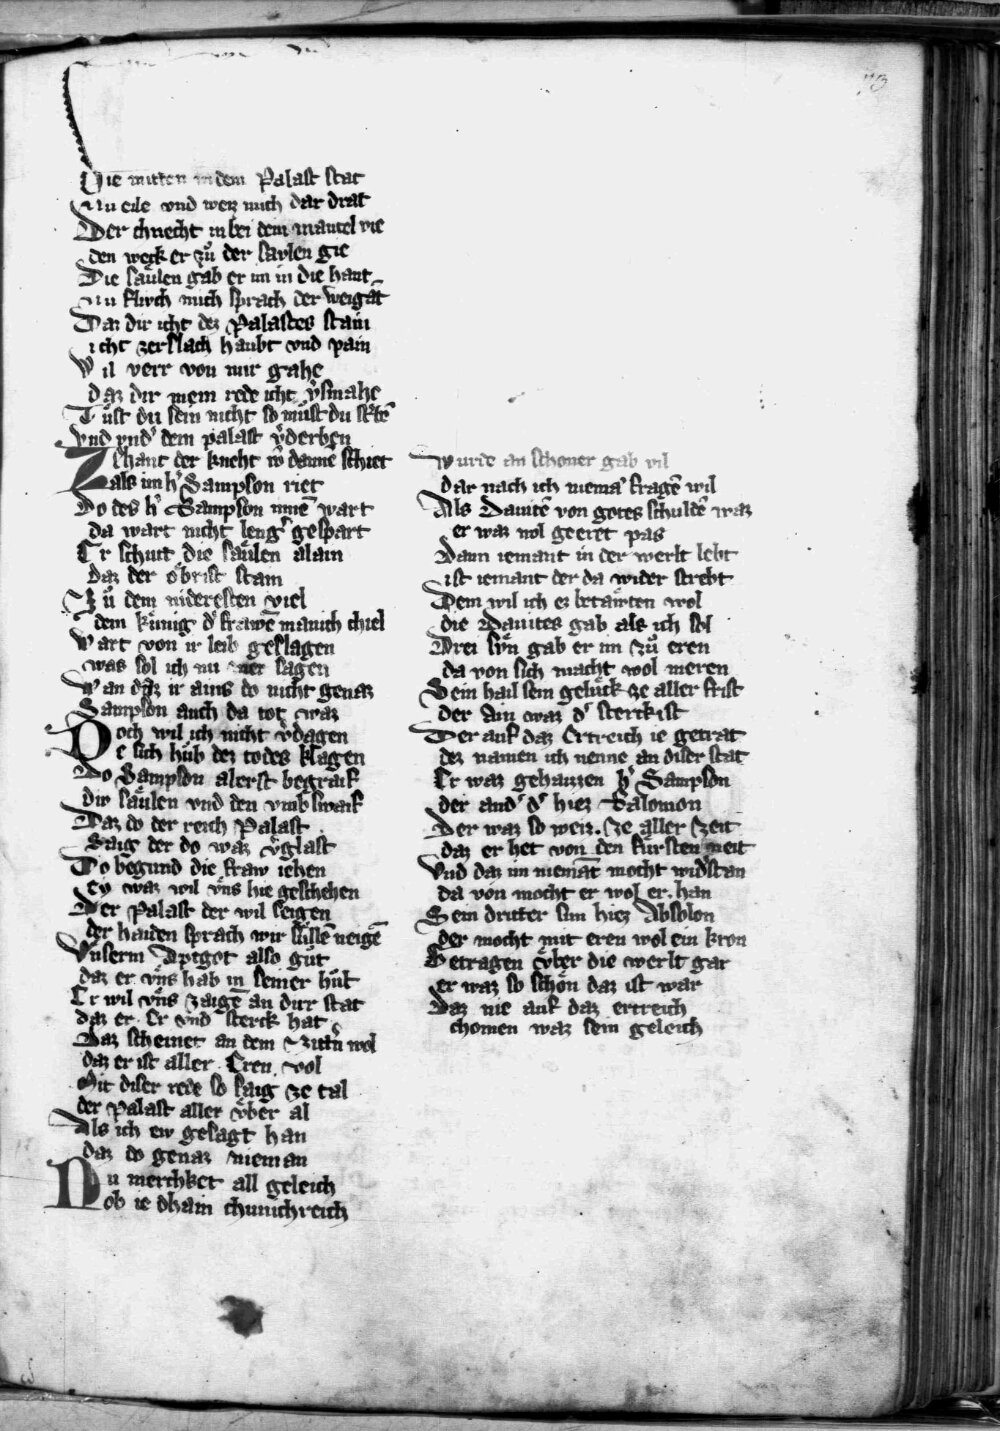 Die mitten in dem Palast stat
Nu eile vnd weiz mich dar drat
Der chnecht in bei dem mantel vie
den weck er zů der saulen gie
Die saͤulen gab er im in die hant
Nu fluch mich sprach der weigāt
Daz dir icht dez Palastes stain
icht zerslach haubt vnd pain
Wil verr von mir gahe
daz dir mein rede icht v̓smahe
Tuͤst du sein nicht so muͤst du st̓bē
Vnd vnd̓ dem palast v̓derben
Zehant der kneht vō danne schiet
als im h̓ Sampson riet
Do des h̓ Sampson innē wart
da wart nicht leng̓ gespart
Er schutt die saͤulen alain
daz der oͤbrist stain
Zů dem nideresten viel
dem kuͤnig d̓ frawē manich chiel
Wart von ir leib geslagen
was sol ich nu mer sagen
Wan daz ir ains do nicht genaz
Sampson auch da tot waz
Doch wil ich nicht v̓dagen
e sich huͦb dez todes klagen
Do Sampson alerst begraif
die saͤulen vnd den vmbswaif
Daz do der reich Palast
Saig der do waz v̓glast
Do begund die fraw iehen
Ey waz wil vͤns hie geschehen
Der Palast der wil seigen
der haiden sprach wir suͤllē neigē
Vnserm Aptgot also guͦt
daz er vͤns hab in seiner huͦt
Er wil vͤns zaigē an diser stat
daz er Er vnd sterck hat
Daz scheinet an dem
daz er ist aller Eren vol
Mit diser rede so saig ze tal
der Palast aller vͤber al
Als ich ew gesagt han
daz do genaz nieman
Nu merchket all geleich
ob ie dhain chunichreich
Wurde an schoner gab vil
dar nach ich niemā fragē wil
Als Dauitē von gotes schuldē waz
er waz wol geeret paz
Dann iemant in der werlt lebt
ist iemant der da wider strebt
Dem wil ich ez betaͤwten wol
die Dauites gab als ich sol
Drei suͤn gab er im zů eren
da von sich macht wol meren
Sein hail sein geluͤck ze aller frist
der Ain waz d̓ sterkist
Der auf daz Ertreich ie getrat
dez namen ich nenne an diser stat
Er waz gehaizzen h̓ Sampson
der and̓ d̓ hiez Salomon
Der waz so weiz. ze aller zeit
daz er het von den fuͤrsten neit
Vnd daz im niemāt mocht wid̓stan
da von mocht er wol er. han
Sein dritter sun hiez Absolon
der mocht mit eren wol ein kron
Getragen vͤber die werlt gar
er waz so schoͤn daz ist war
Daz nie auf daz ertreich
chomen waz sein geleich